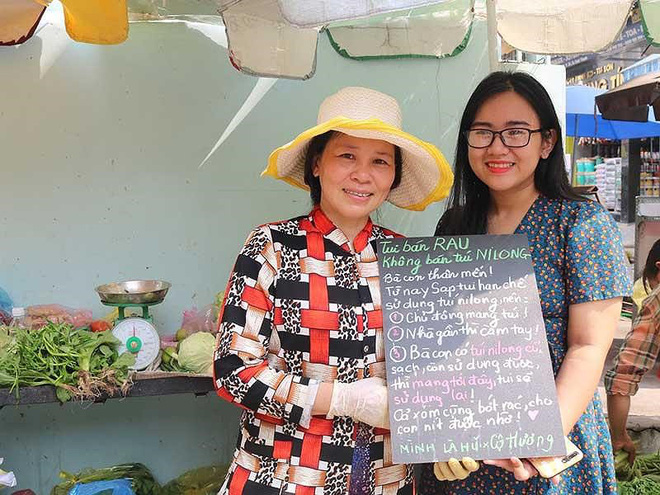 Tui bán RAU
Không bán túi NILONG
Bà con thân mến!
Từ nay Sạp tui hạn chế
sử dụng túi nilong, nên:
1 Chủ động mang túi!
2 Nhà gần thì cầm tay!
3 Bà con có túi nilong cũ,
sạch, còn sử dụng được,
thì mang tới đây, tui sẽ
sử dụng lại!
Cả xóm cùng bớt rác, cho
con nít được nhờ!
MÌNH LÀ HỨ × Cô Hương